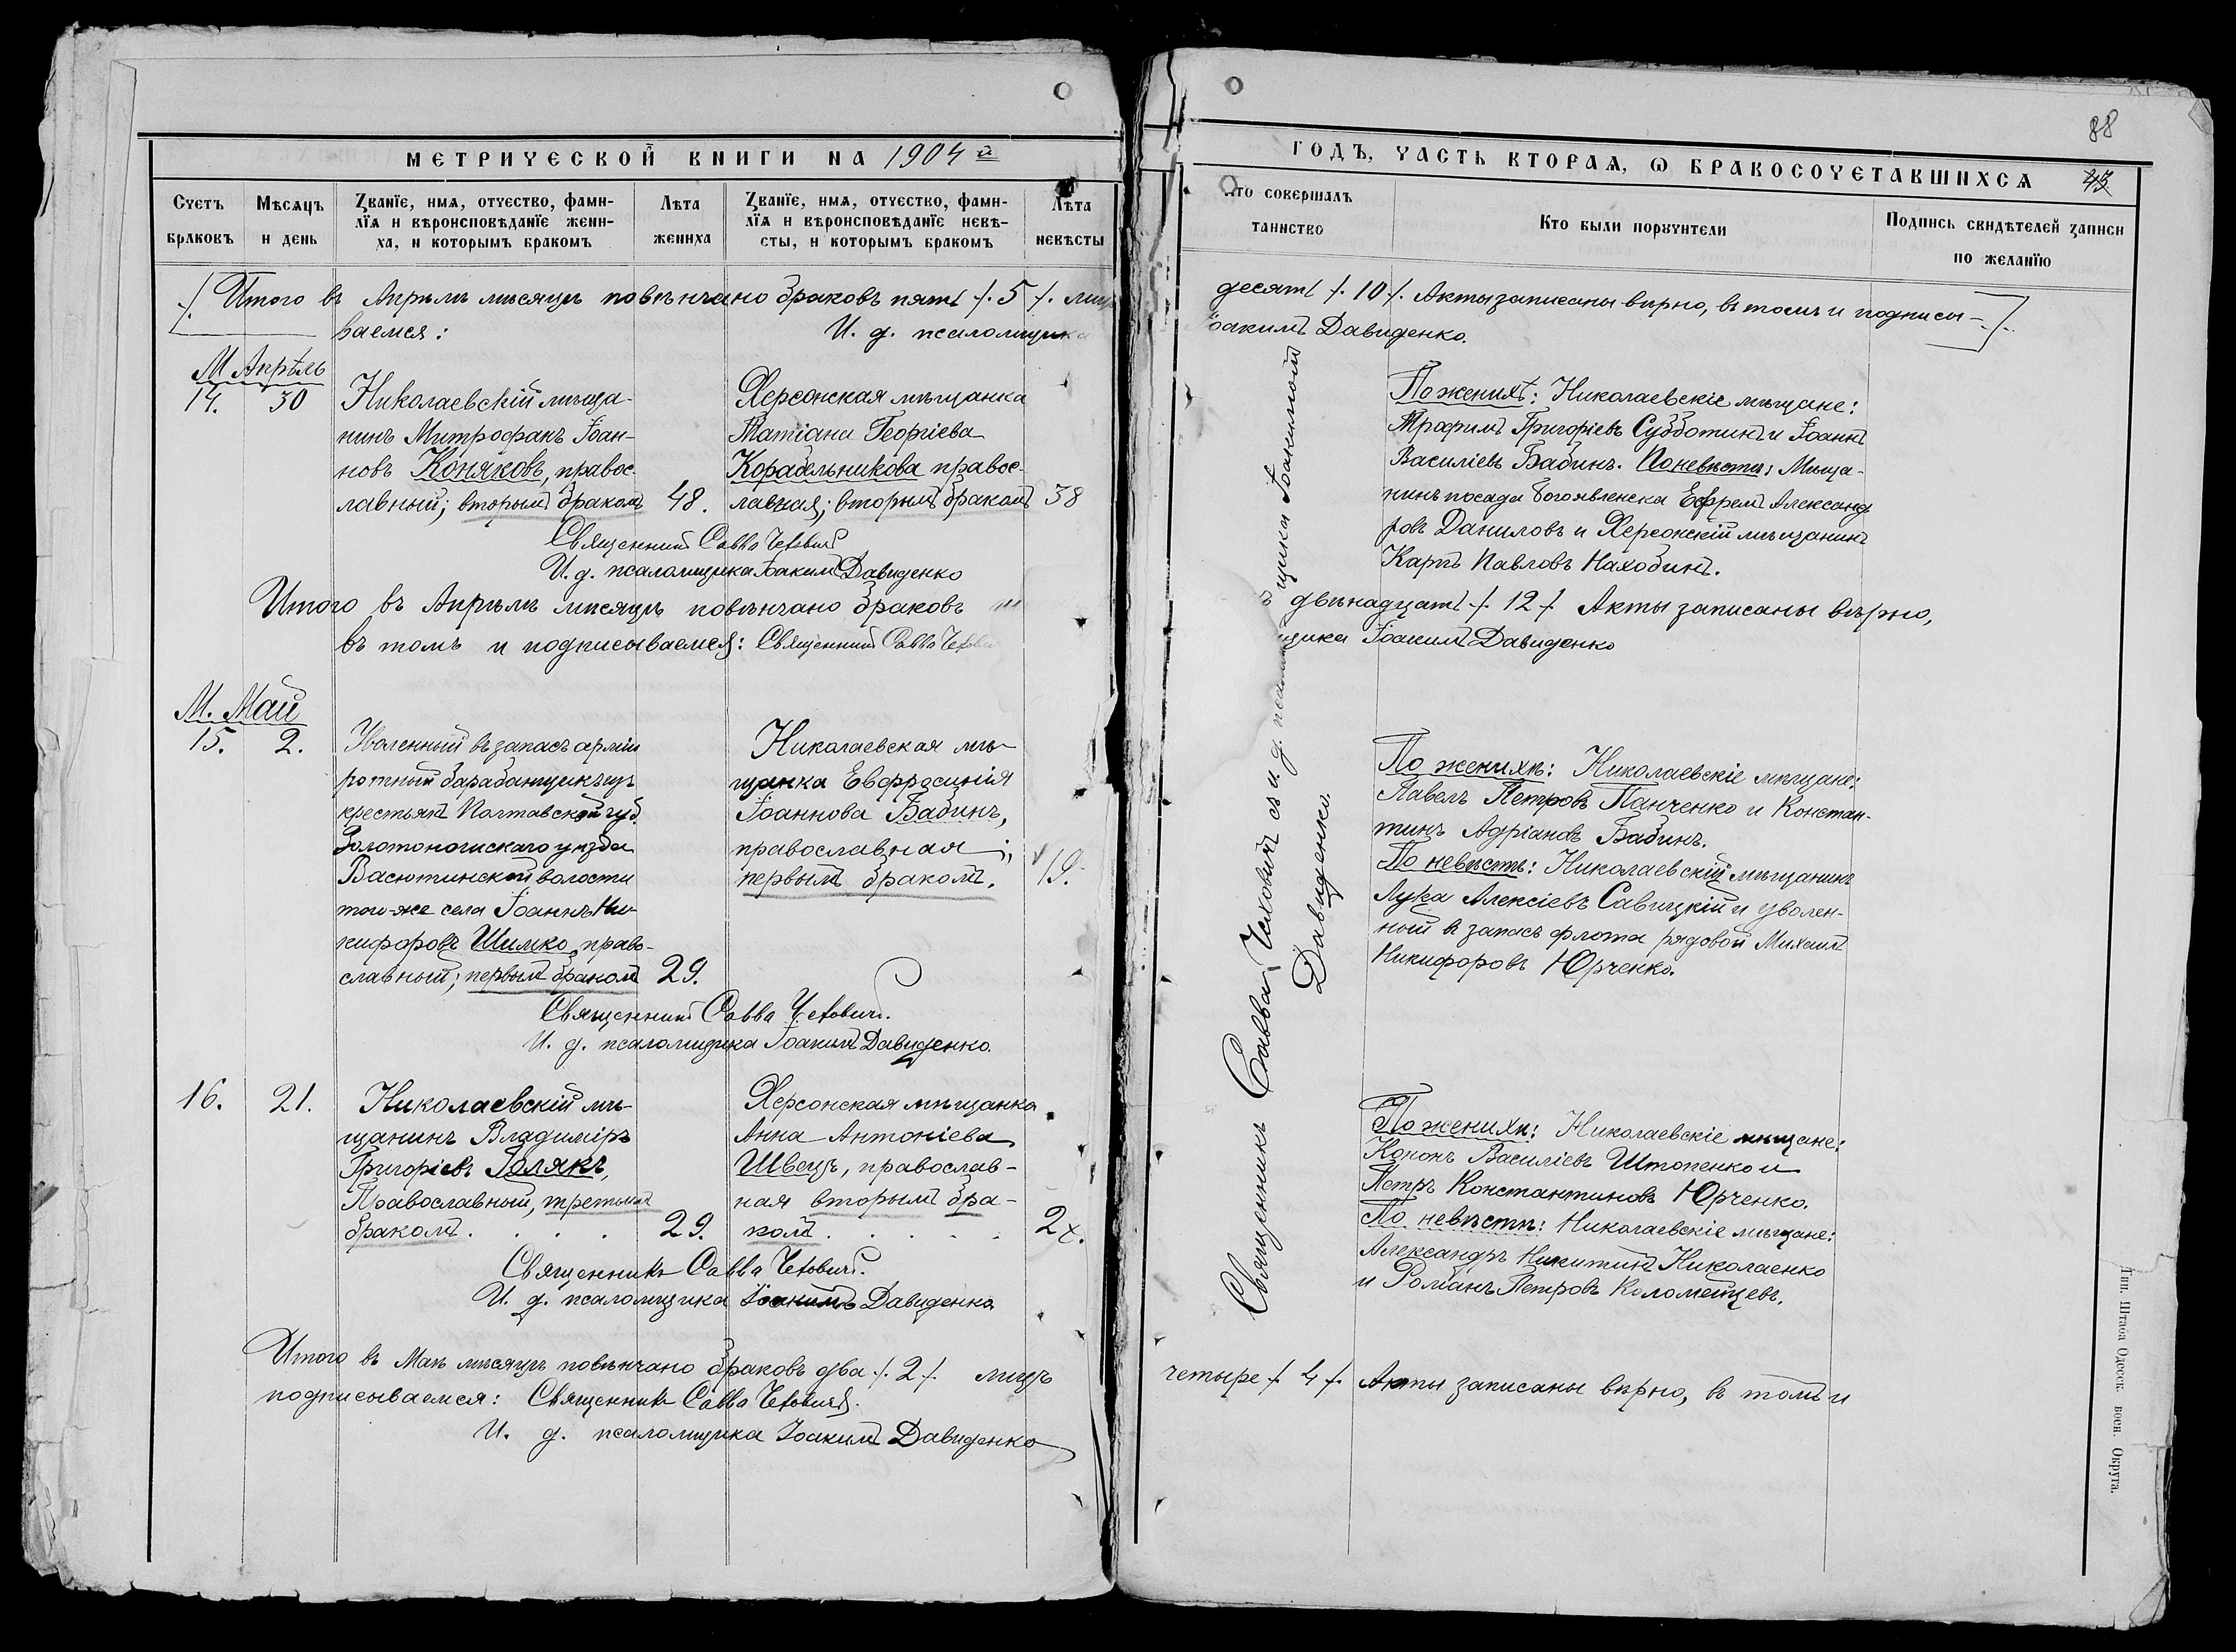 МЕТРИЧЕСКОЙ КНИГИ НА 1904 й
Счетъ браковъ
Мѣсяцъ и день
Званїе, имя, отчество, фами-
лїя и вѣроисповѣданїе жени-
ха, и которымъ бракомъ
Лѣта жениха
Званїе, имя, отчество, фами-
лїя и вѣроисповѣданїе невѣ-
сты, и которымъ бракомъ
Лѣта невѣсты
Итого въ Апрѣлѣ мѣсяцѣ повѣнчано браковъ пять /. 5 /.
ваемся: И. д. псаломщика
М Апрѣль
14. 30
Николаевскій мѣща-
нинъ Митрофанъ Іоан-
новъ Коняковъ, правос-
лавный; вторымъ бракомъ
48.
Херсонская мѣщанка
Татіана Георгіева
Корабельникова правос-
лавная; вторымъ бракомъ
38
Священникъ Савва Чехович
И. д. псаломщика Іоакимъ Давиденко
Итого въ Апрѣлѣ мѣсяцѣ повѣнчано браковъ
въ томъ и подписываемся: Священникъ Савва
М. Май
15. 2.
Уволенный въ запасъ арміи
ротный барабанщикъ изъ
крестьянъ Полтавской губ.
Золотоношскаго уѣзда
Васютинской волости
того-же села Іоаннъ Ни-
кифоровъ Шимко, право-
славный; первымъ бракомъ
29.
Николаевская мѣ-
щанка Евфросинія
Іоаннова Бабинъ,
православная;
первымъ бракомъ.
19.
Священникъ Савва Чехович.
И. д. псаломщика Іоакимъ Давиденко.
16. 21.
Николаевскій мѣ-
щанинъ Владиміръ
Григоріевъ Голякъ,
Православный, третьимъ
бракомъ . . . .
29.
Херсонская мѣщанка
Анна Антоніева
Швецъ, православ-
ная вторымъ бра-
комъ . . . . .
Священникъ Савва Чехович.
И. д. псаломщика Іоакимъ Давиденко
Итого въ Маѣ мѣсяцѣ повѣнчано браковъ два /. 2 /. лицъ
подписываемся: Священникъ Савва Чехович.
И. д. псаломщика Іоакимъ Давиденко
88
ГОДЪ, ЧАСТЬ ВТОРАЯ, Ѡ БРАКОСОЧЕТАВШИХСЯ 43
Кто совершалъ таинство
Кто были поручители
Подпись свидѣтелей записи по желанїю
десять /. 10 /. Акты записаны вѣрно, въ томъ и подписы-
Іоакимъ Давиденко.
По женихѣ: Николаевскіе мѣщане:
Трофимъ Григоріевъ Субботинъ и Іоаннъ
Василіевъ Бабинъ. По невѣстѣ: Мѣща-
нинъ посада Богоявленска Ефремъ Александ
ровъ Даниловъ и Херсонскій мѣщанинъ
Карпъ Павловъ Находинъ.
двѣнадцать /. 12 /. Акты записаны вѣрно,
щика Іоакимъ Давиденко
По женихѣ: Николаевскіе мѣщане:
Павелъ Петровъ Панченко и Констан-
тинъ Адріановъ Бабинъ.
По невѣстѣ: Николаевскій мѣщанинъ
Лука Алексіевъ Савицкій и уволен-
ный въ запасъ флота рядовой Михаилъ
Никифоровъ Юрченко.
По женихѣ: Николаевскіе мѣщане:
Кононъ Василіевъ Штопенко и
Петръ Константиновъ Юрченко.
По невѣстѣ: Николаевскіе мѣщане:
Александръ Никитинъ Николаенко
и Романъ Петровъ Коломейцевъ.
четыре /. 4 /. Акты записаны вѣрно, въ томъ и
Священникъ Савва Чехович съ и. д. псаломщика Іоакимомъ
Давиденко.
Тип. Штаба Одесск. воен. Округа.